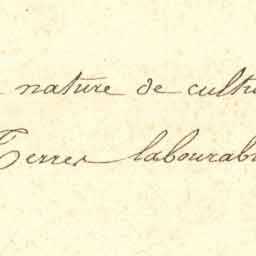 nature de cultu
Terres labourab